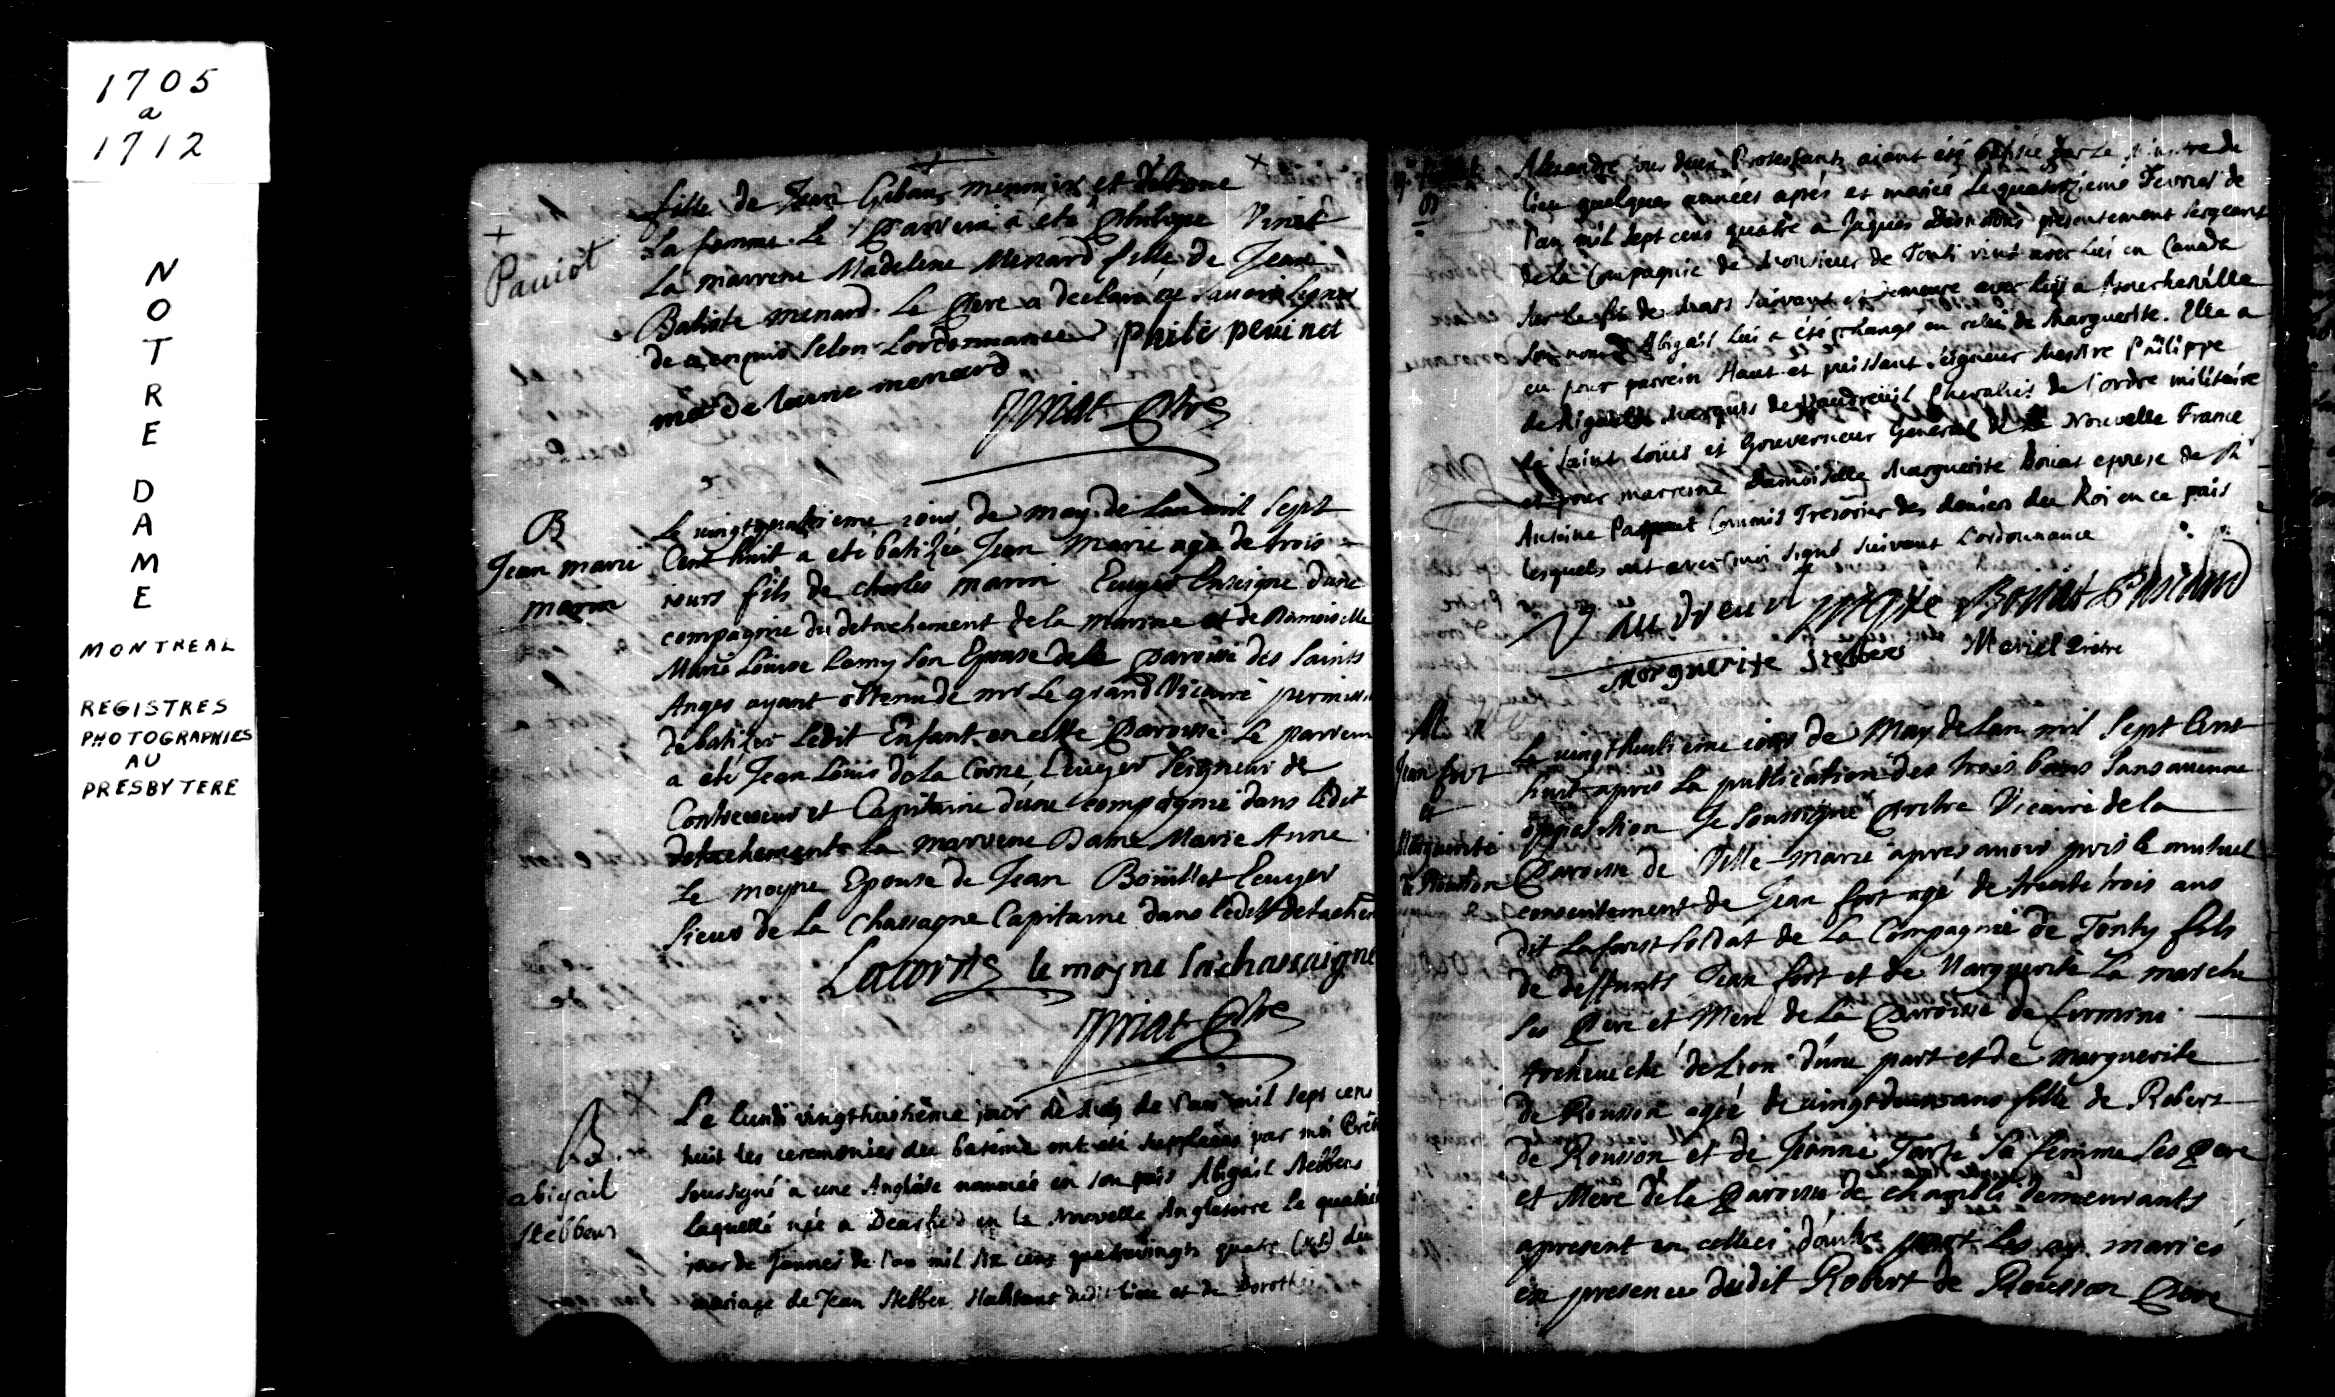 1705
a
1712
NOTRE
DAME
MONTREAL
REGISTRES
PHOTOGRAPHIES
AU
PRESBYTERE
fille de Jean Gibau menuisier et
sa femme. Le Parrein a été Philippe Vinet
La marrene Madelene Menard fille de Jean
Batiste menard. Le Pere a declaré ce savoir signer
de ce enquis selon Lordonnance philipe vinet
menard
Priat Ptre
Pauiot
B
Jean marie
marin
Le vingtquatrieme jour de may de Lan mil Sept
Cent huit a eté batizé Jean Marie agé de trois
jours fils de charles marin Ecuyer Enseigne dune
compagnie du detachement de la marine et de Damoiselle
Marie Louise Lamy son Epouse de la paroisse des Saints
Anges ayant obtenu de mr Le grand Vicaire permissi
de batizer Ledit Enfant en cette Paroisse Le parrein
a eté Jean Louis de la Corne Ecuyer Seigneur de
Contrecoeur et Capitaine d'une compagnie dans ledit
detachement La marrene Dame Marie Anne
Le moyne Epouse de Jean Bouillet Ecuyer
Sieur de La Chassagne Capitaine dans ledit detachem
Lacorne le moyne lachassaigne
Priat Ptre
B
abigail
stebbens
Le lundi vingthuitième jour de May de l'an mil sept cens
huit les ceremonies du batême ont été suppleées par moi Prêtre
soussigné a une Angloise nommée en son païs Abigaïl Stebbens
laquelle née a Dearfied en la Nouvelle Angleterre le quatriè
jour de Janvier de l'an mil six cens quatrevingts quatre (x.s) du
mariage de Jean Stebben Habitant dudit lieu et de Dorothée
Alexandre tous deux Protestants aiant été batisée par le ministre du
lieu quelques années aprés et mariée le quatorzieme Fevrier de
l'an mil sept cens quatre a Jaques presentement sergeant
de la Compagnie de Monsieur de Tonti vint avec lui en Canada
sur la fin de Mars suivant et demeure avec lui a Boucherville
Son nom d'Abigaïl lui a été changé en celui de Marguerite. Elle a
eu pour parrein Haut et puissant seigneur Messire Philippe
de Rigault Marquis de Vaudreüil Chevalier de l'ordre militaire
de Saint Loüis et Gouverneur General de la Nouvelle France
et pour marreine Damoiselle Marguerite Bouat epouse de Mr
Antoine Commis Tresorier des deniers du Roi en ce païs
lesquels ont avec moi signé suivant l'ordonnance
Vaudreuil Bouat Pascaud
Marguerite Stebbens Meriel Prêtre
M
Jean fort
et
Marguerite
de Rousson
Le vingthuitieme jour de May de Lan mil Sept Cent
huit apres La publication des trois bans Sans aucune
opposition Je Soussigné Prêtre Vicaire de la
Paroisse de Ville-marie apres avoir pris le mutuel
consentement de Jean fort agé de trente trois ans
dit Laforest Soldat de La Compagnie de Tonty fils
de deffunts Jean fort et de Marguerite La marche
Ses Pere et Mere de La Paroisse de firmini
Archeveché de Lion d'une part et de marguerite
de Rousson agée de vingt ans fille de Robert
de Rousson et de Jeanne Tarté Sa femme Ses Pere
et Mere de la Paroisse de chambli demeurants
apresent en celleci d'autre part Les ay mariés
en presence dudit Robert de Rousson Pere